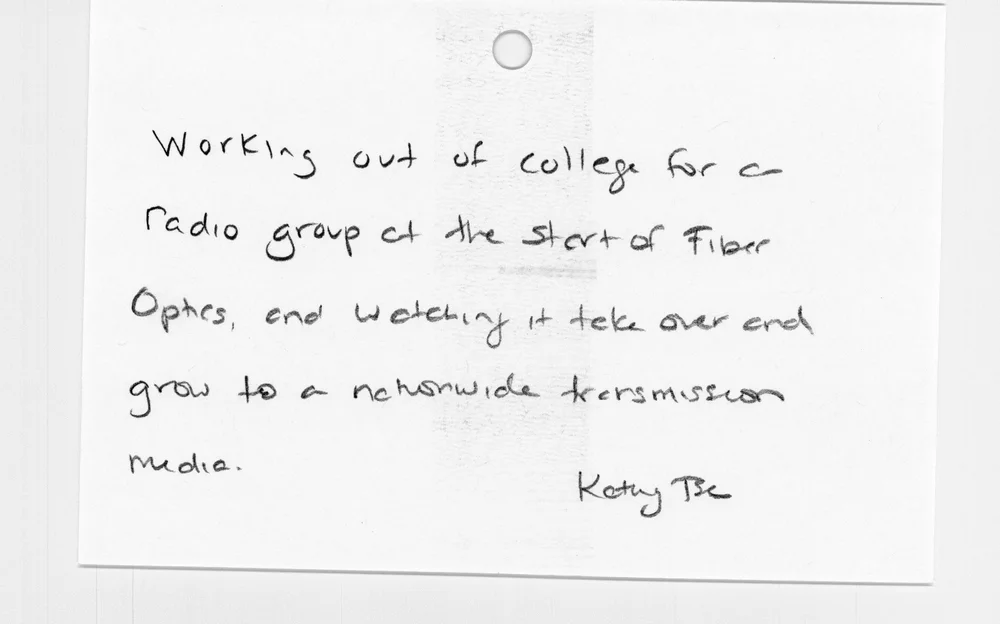 Working out of college for a
radio group at the start of Fiber
Optics, and watching it take over and
grow to a nationwide transmission
media.
Kathy